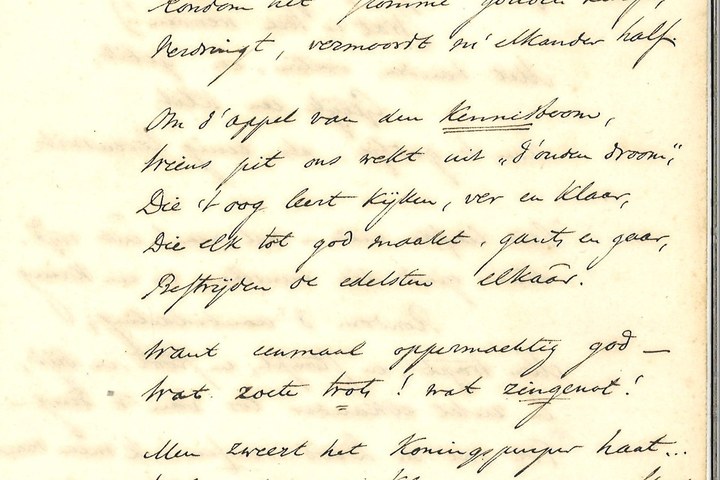 Rondom het stomme gouden kalf,
Verdringt, vermoordt m' elkander half.
Om d'appel van den Kennisboom,
Wiens pit ons wekt uit „d'ouden droom",
Die 't oog leert kijken, ver en klaar,
Die elk tot god maakt, gants en gaar,
Bestrijden de edelsten elkaâr.
Want eenmaal oppermachtig god —
Wat zoete trots! wat zingenot!
Men zweert het Koningspurper haat...